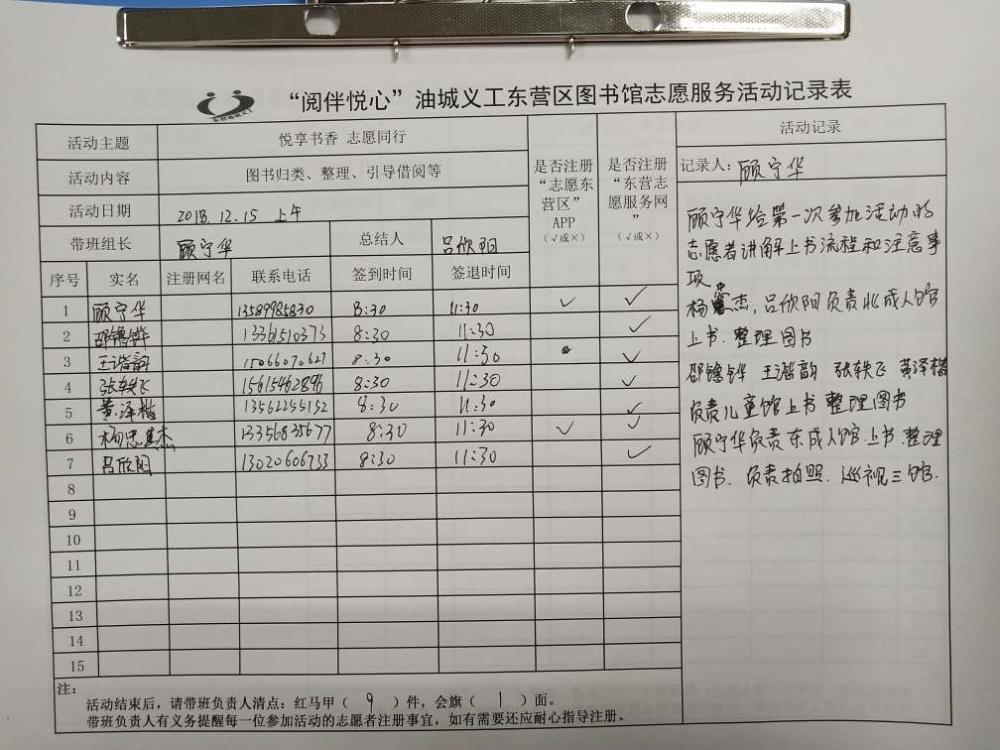 “阅伴悦心”油城义工东营区图书馆志愿服务活动记录表
活动主题 悦享书香 志愿同行
活动内容 图书归类、整理、引导借阅等
活动日期 2018.12.15 上午
带班组长 顾守华 总结人 吕欣阳
序号 实名 注册网名 联系电话 签到时间 签退时间
是否注册
“志愿东
营区”
APP
(√或×)
是否注册
“东营志
愿服务网
”
(√或×)
1 顾守华 13589985830 8:30 11:30 √ √
2 邵镱铧 13361510373 8:30 11:30 √
3 王谐韵 15066070627 8:30 11:30 √
4 张轶飞 15615462896 8:30 11:30 √
5 黄泽楷 13562255152 8:30 11:30 √
6 杨忠杰 13356835677 8:30 11:30 √ √
7 吕欣阳 13020606733 8:30 11:30 √
8
9
10
11
12
13
14
15
注:
活动结束后，请带班负责人清点：红马甲（ 9 ）件，会旗（ 1 ）面。
带班负责人有义务提醒每一位参加活动的志愿者注册事宜，如有需要还应耐心指导注册。
活动记录
记录人: 顾守华
顾守华给第一次参加活动的
志愿者讲解上书流程和注意事
项。
杨忠杰,吕欣阳负责北成人馆
上书.整理图书
邵镱铧 王谐韵 张轶飞 黄泽楷
负责儿童馆上书 整理图书
顾守华负责东成人馆.上书.整理
图书.负责拍照.巡视三馆.